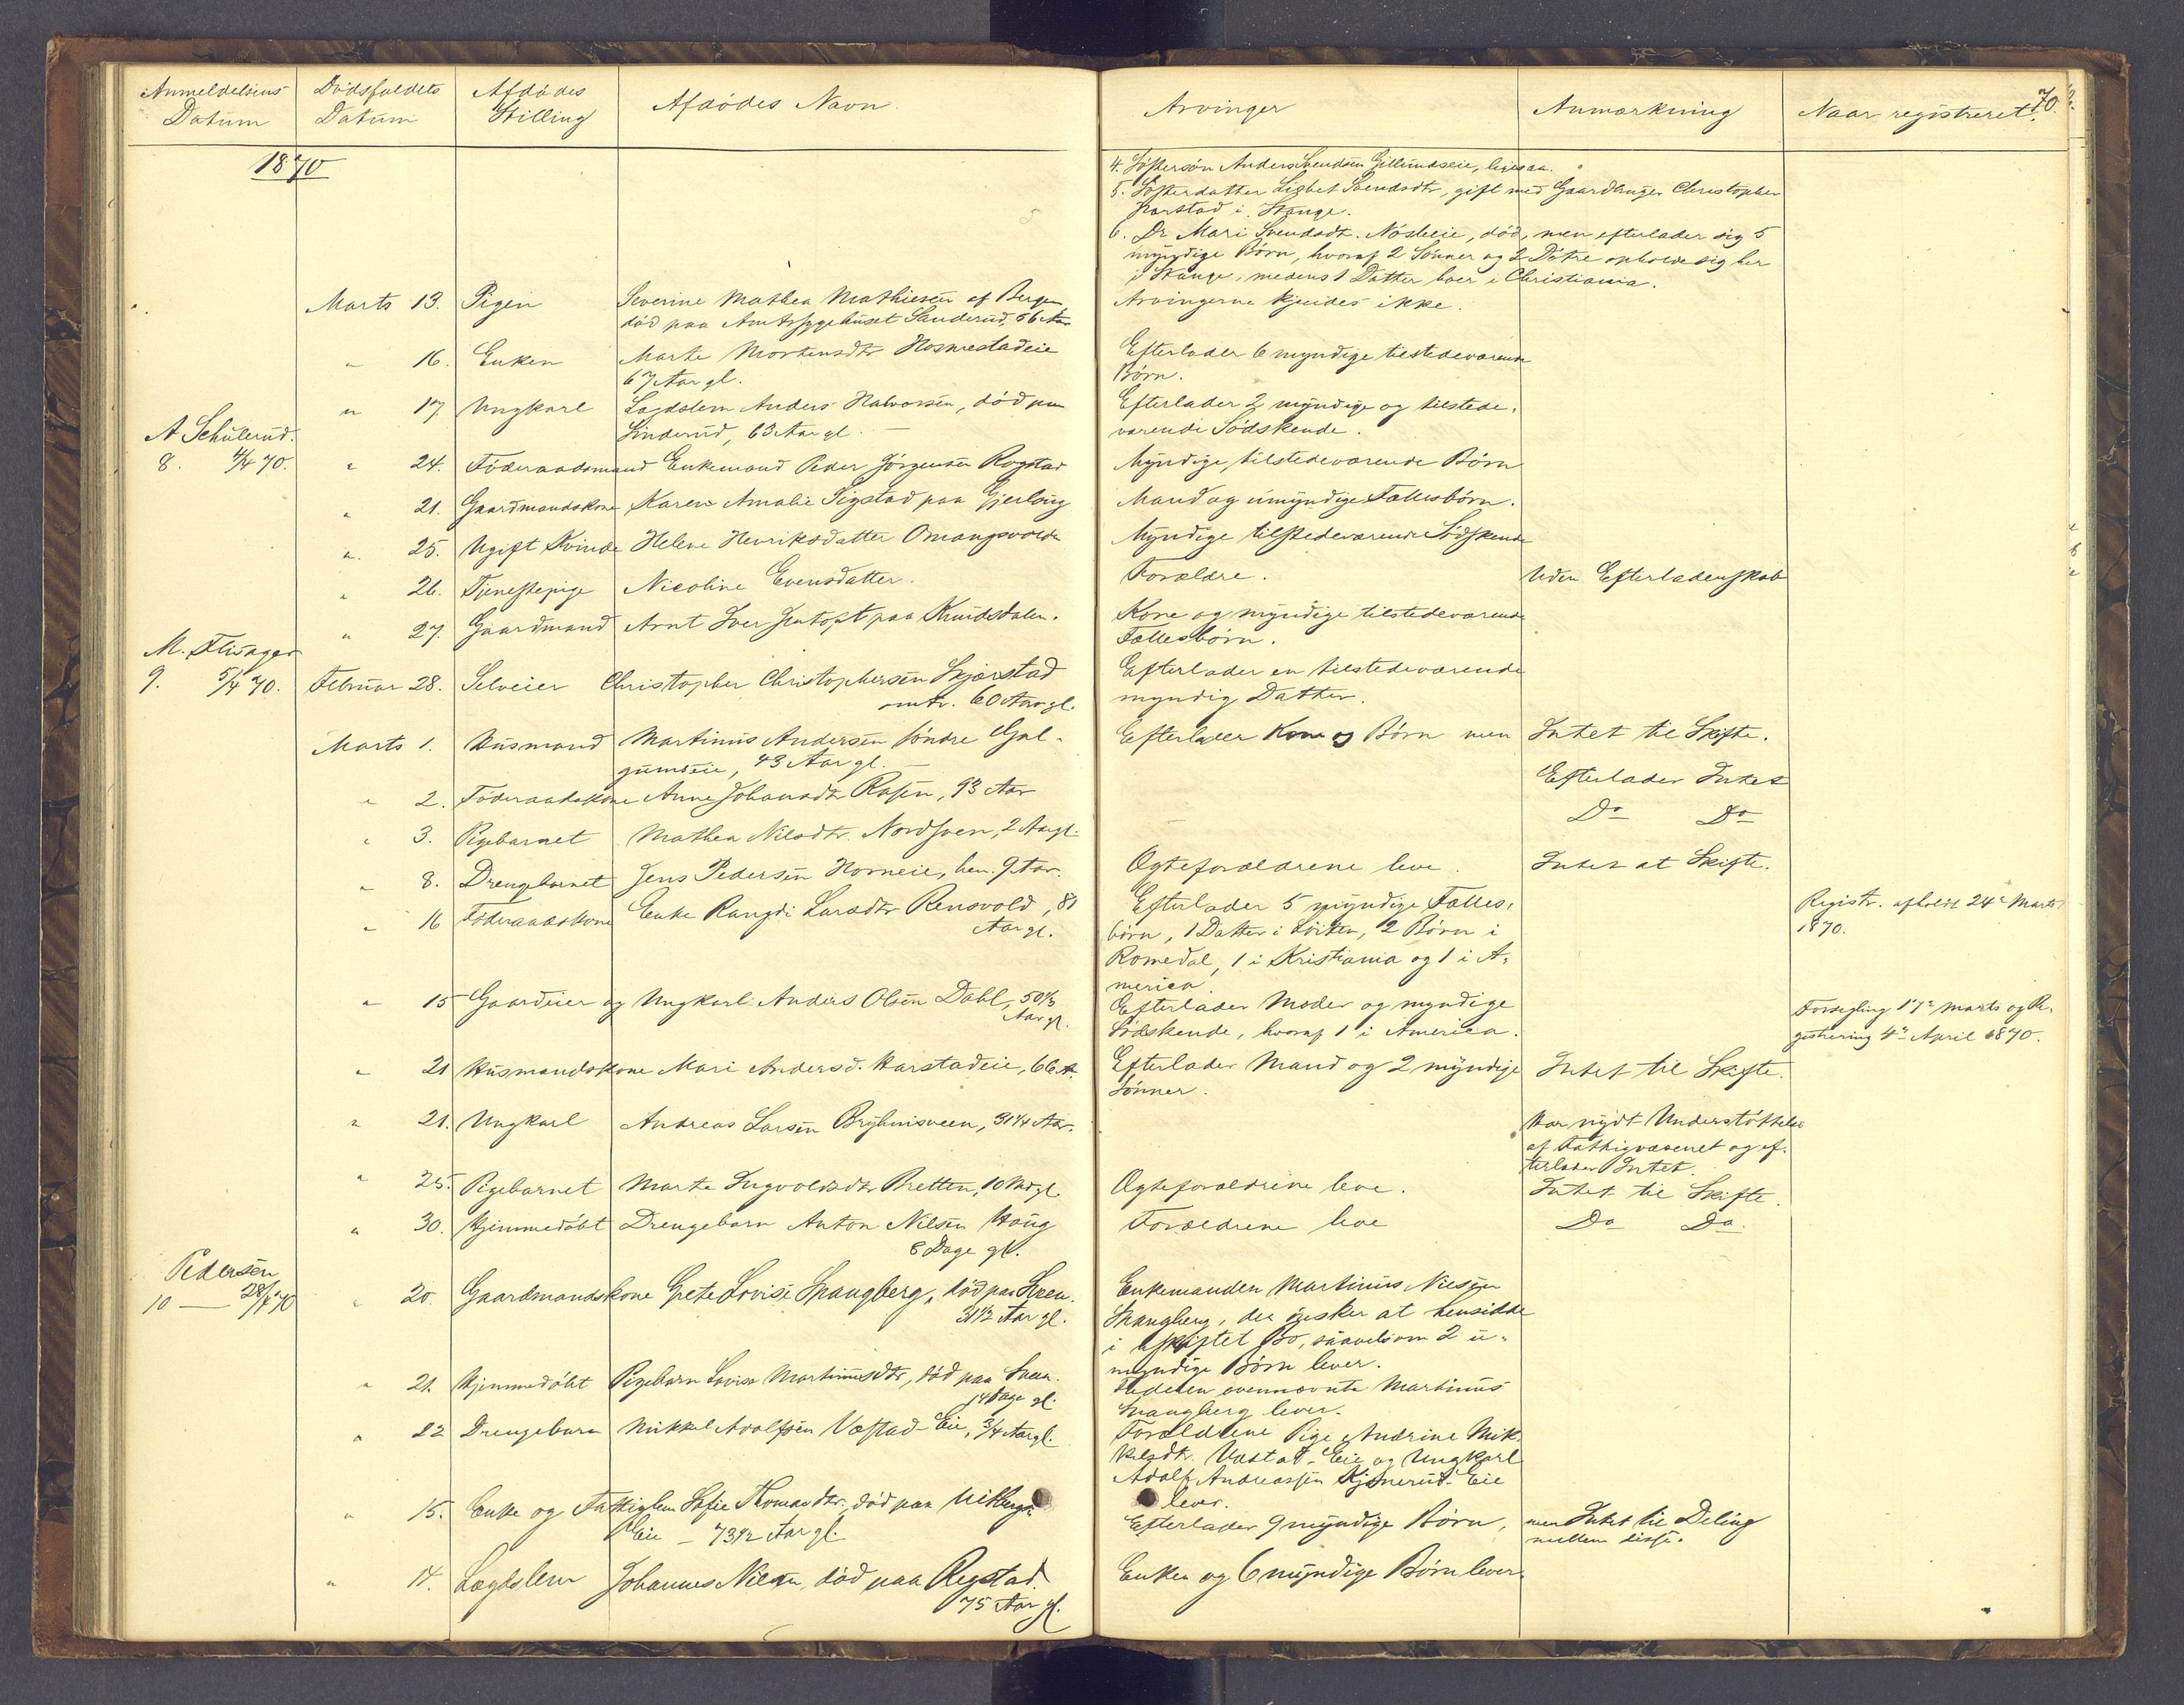 Anmeldelsens Datum
Dödsfaldets Datum
Afdödes Stilling
Afdödes Navn.
Arvinger
Anmærkning
Naar registreret.
70.
1870
4. Söstersön Anders Svendsen Gillundseie, ligesaa.
5. Sösterdatter Lisbet Svendsdtr, gift med Gaardbruger Christopher
Harstad i Stange.
6. Do Mari Svendsdtr. Nösleeie, död, men efterlader sig 5
myndige Börn, hvoraf 2 Sönner og 2 Dötre opholde sig her
i Stange, medens 1 Datter boer i Christiania.
Marts 13. Pigen Severine Mathea Mathiesen af Bergen Arvingerne kjendes ikke.
död paa Amtssygehuset Sanderud, 56 Aar
" 16. Enken Marte Mortensdtr Hosmestadeie Efterlader 6 myndige tilstedeværende
67 Aar gl. Börn.
" 17. Ungkarl Lægdslem Anders Halvorsen, död paa Efterlader 2 myndige og tilstede-
Linderud, 63 Aar gl. værende Södskende.
A Schulerud.
8. 4/4 70. " 24. Föderaadsmand Enkemand Peder Jörgensen Rogstad Myndige, tilstedeværende Börn
" 21. Gaardmandskone Karen Amalie Sigstad paa Gjerlug Mand og umyndige Fællesbörn.
" 25. Ugift Kvinde Helene Henriksdatter Omangsvolden Myndige tilstedeværende Södskende
" 26. Tjenestepige Nicoline Evensdatter. Forældre. Uden Efterladenskab
" 27. Gaardmand Arnt Iver Jentoft paa Knudsdalen. Kone og myndige tilstedeværende
Fællesbörn.
M. Flisager
9. 5/4 70. Februar 28. Selveier Christopher Christophersen Skjærstad Efterlader en tilstedeværende
omtr. 60 Aar gl. myndig Datter.
Marts 1. Husmand Martinus Andersen söndre Gul- Efterlader Kone og Börn men Intet til Skifte.
gumseie, 43 Aar gl.
" 2. Föderaadskone Anne Johansdtr Rosen, 93 Aar Efterlader Intet
" 3. Pigebarnet Mathea Nilsdtr. Nordsveen, 2 Aar gl. Do Do
" 8. Drengebarnet Jens Pedersen Horneie, hen. 9 Aar. Ægteforældrene leve. Intet at Skifte.
" 16 Föderaadskone Enke Rangdi Larsdtr Rensvold, 81 Efterlader 5 myndige Fælles- Registr. afholdt 24de Marts
Aar gl. börn, 1 Datter i Löiten, 2 Börn i 1870.
Romedal, 1 i Kristiania og 1 i A-
merica.
" 15 Gaardeier og Ungkarl Anders Olsen Dahl, 50 1/3 Efterlader Moder og myndige Forsegling 17de Marts og Re-
Aar gl. Södskende, hvoraf 1 i America. gistrering 4de April 1870.
" 21 Husmandskone Mari Andersd. Harstadeie, 66 A. Efterlader Mand og 2 myndige Intet til Skifte.
Sönner.
" 21. Ungkarl Andreas Larsen Bryhnisveen, 31 1/4 Aar. Har nydt Understöttelse
af Fattigvæsenet og ef-
terlader Intet.
" 25. Pigebarnet Marte Ingvoldsdtr Bretten, 10 Md gl. Ægteforældrene leve. Intet til Skifte.
" 30. Hjemmedöbt Drengebarn Anton Nilsen Houg Forældrene leve Do Do.
8 Dage gl.
Pedersen
10 — 28/4 70 " 20. Gaardmandskone Grete Lovise Spangberg, död paa Sveen. Enkemanden Martinus Nilsen
31 1/2 Aar gl. Spangberg, der önsker at hensidde
i uskiftet Bo, saavelsom 2 u-
myndige Börn lever.
" 21. Hjemmedöbt Pigebarn Lovise Martinusdtr, död paa Sveen. Faderen ovennævnte Martinus
14 Dage gl. Spangberg lever.
" 22 Drengebarn Mikkel Adolfsen Væstad-Eie, 3/4 Aar gl. Forældrene Pige Andrine Mik-
kelsdtr. Væstad-Eie og Ungkarl
Adolf Andreassen Kjonerud-Eie
lever.
" 15. Enke og Fattiglem Sofie Thomasdtr. död paa Uthuge Efterlader 9 myndige Börn, men Intet til Deling
Eie — 73 1/2 Aar gl. mellem disse.
" 14. Lægdslem Johannes Nilsen, död paa Rogstad. Enken og 6 myndige Börn lever.
75 Aar gl.